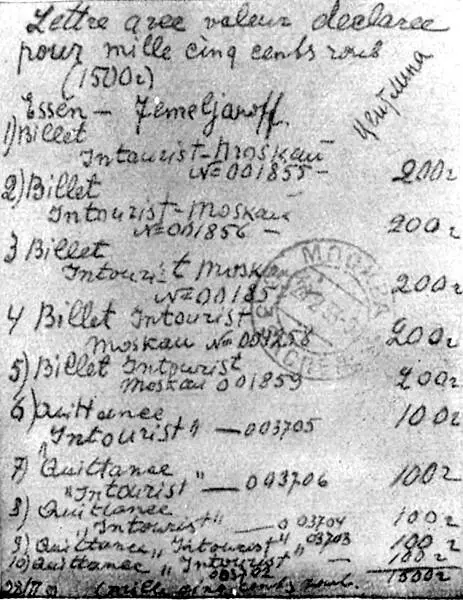 Lettre avec valeur declaree
pour mille cinq cents roub
(1500r)
Essen - Jemeljanoff.
1) Billet
Intourist-Moskau
№ 001855 - 200r
2) Billet
Intourist-Moskau
№ 001856 - 200r
3 Billet
Intourist Moskau
№ 00185 200r
4 Billet Intourist
Moskau № 001258 200r
5) Billet Intourist
Moskau 001859 200r
6) Quittance
"Intourist" — 003705 100r
7) Quittance
"Intourist" — 003706 100r
8) Quittance
"Intourist" — 003704 100r
9) Quittance "Intourist" 003703 100r
10) Quittance "Intourist" 100r
003702 1500r
(mille cinq cents roub.
МОСКВА